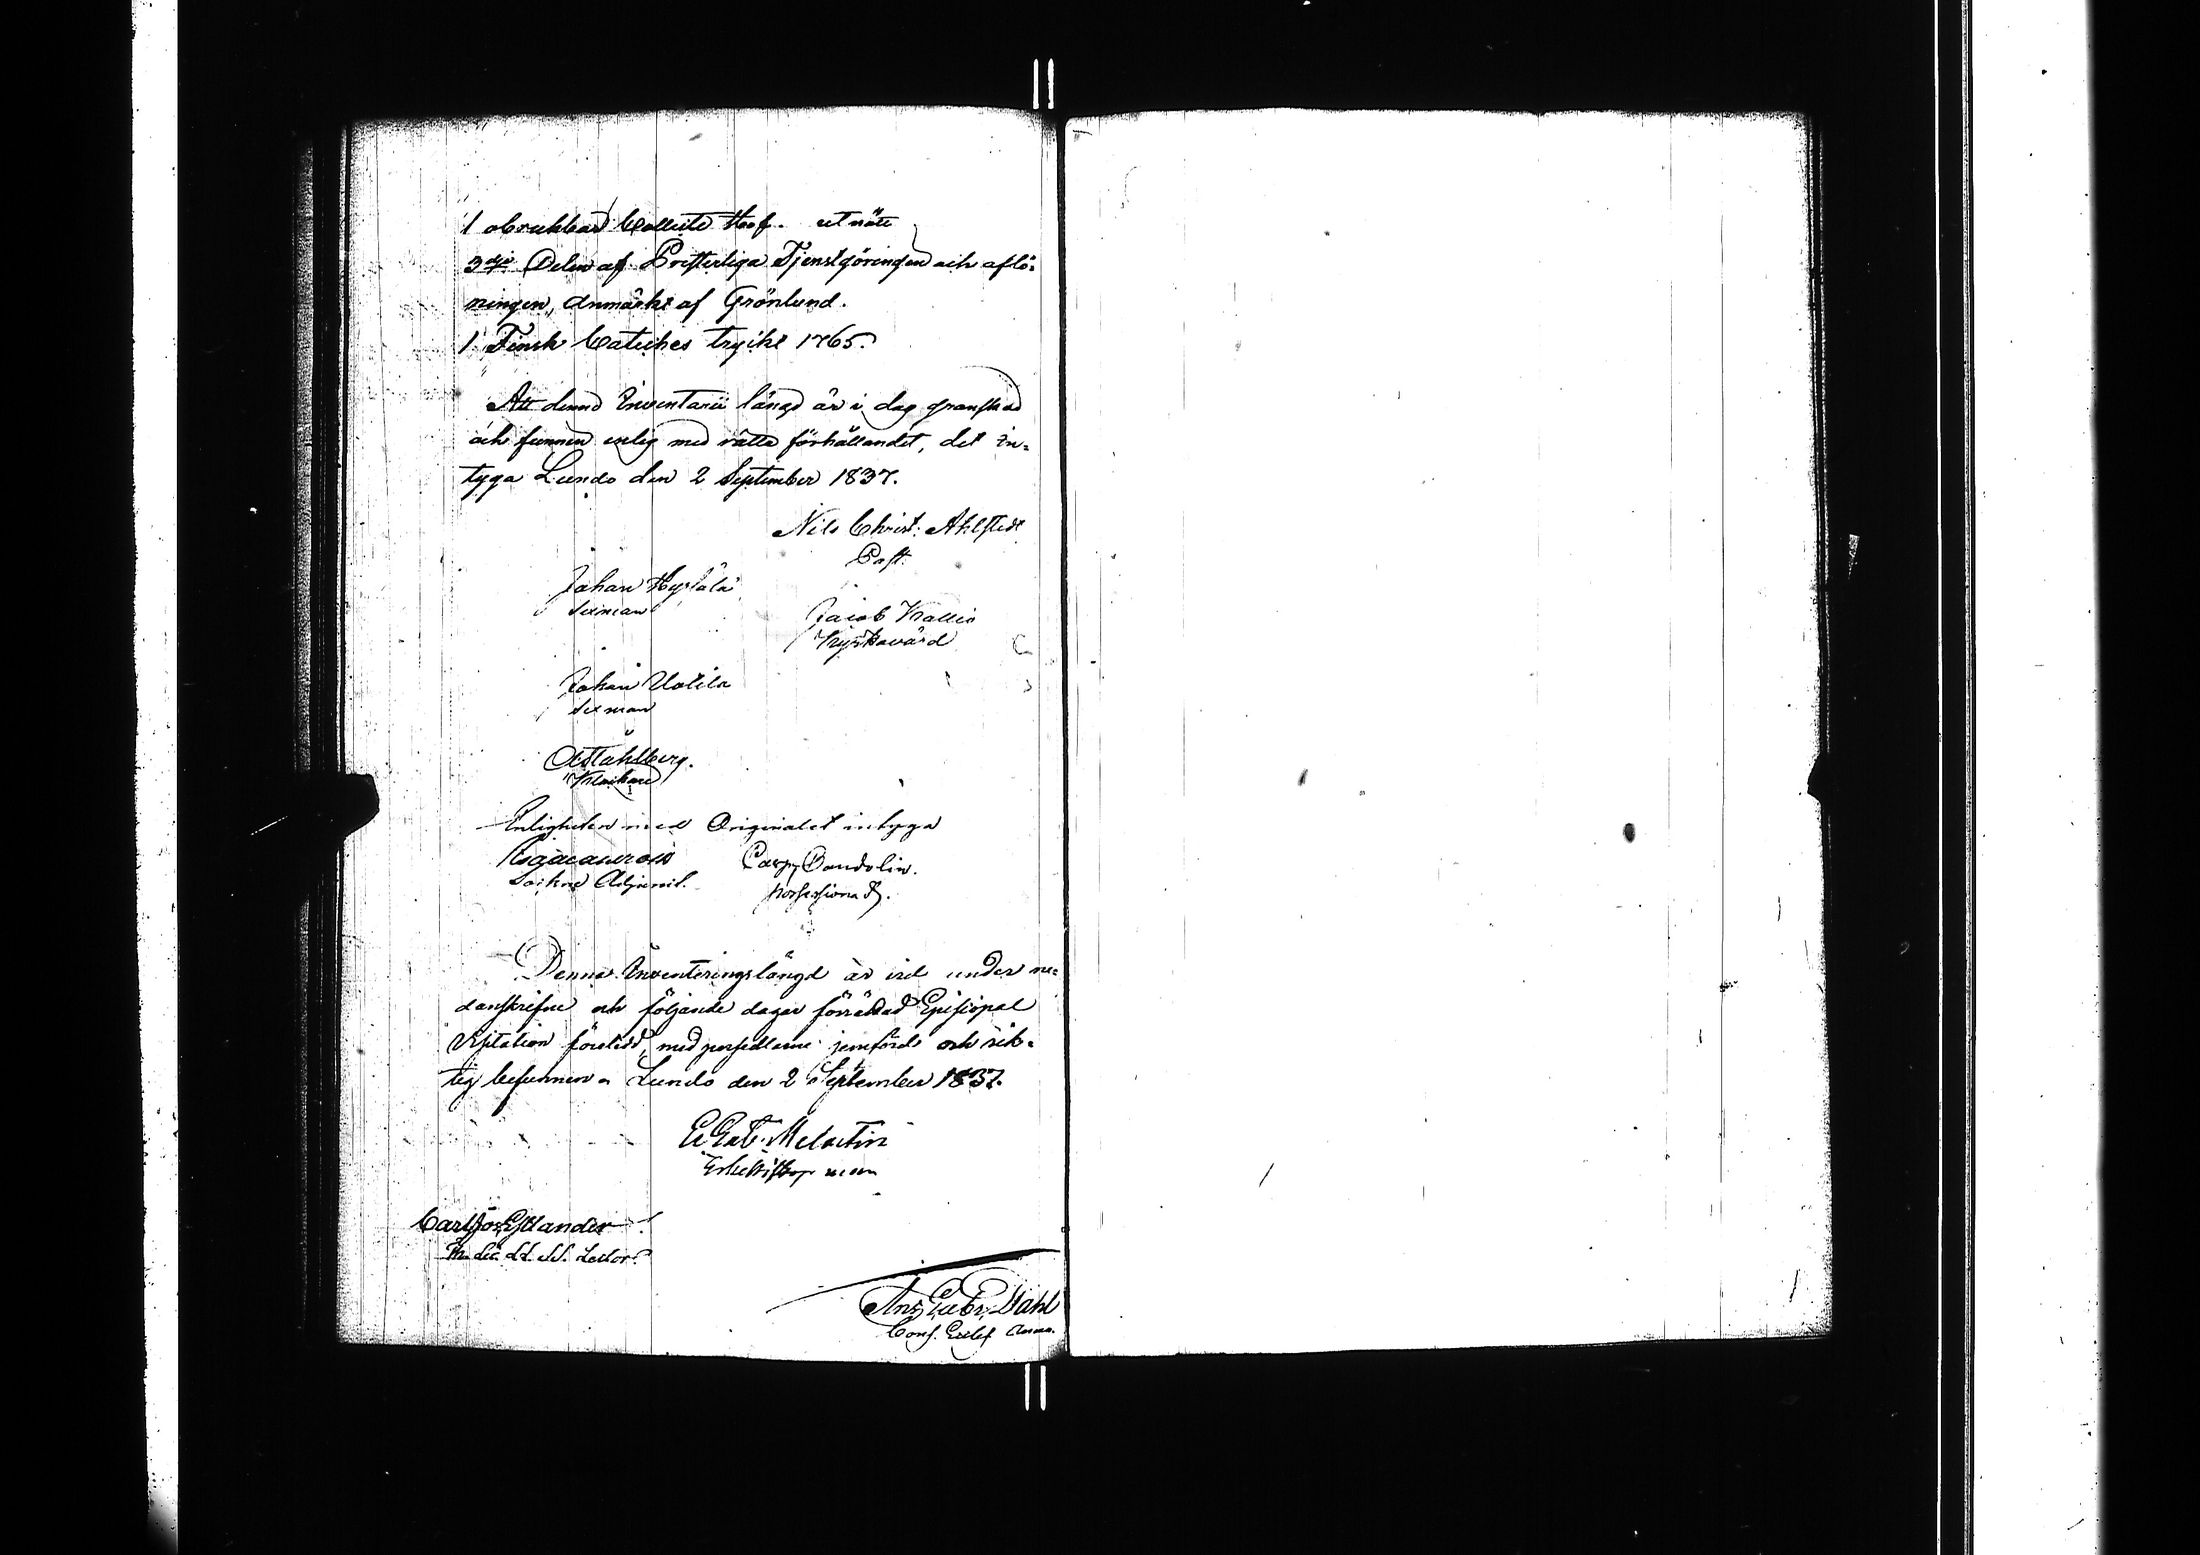 1 obrukbar Collecte Håf. utnött
3dje Delen af Presterliga Tjenstgöringen och aflö-
ningen, anmärkt af Grönlund.
1 Finsk Cateches tryckt 1765.
Att denna Inventarii längd är i dag granskad
och funnen enlig med rätta förhållandet, det in-
tyga Lundo den 2 September 1837.
Nils Christ: Ahlstedt
Past.
Johan
Sexman
Jacob Kallio
Kyrkovärd
Johan Uotila
Sexman
Ståhlberg.
Klockare
Enligheten med Originalet intyga
Sockne Adjunct.
Bandolin.
possessionat.
Denna Inventeringslängd är vid under ne-
danskrifne och följande dagar förrättad Episcopal
Visitation företedd, med persedlarne jemförd och rik-
tig befunnen. Lundo den 2 September 1837.
E. Gab. Melartin
Erkebiskop
Carl Jos. Estlander
Lector
And. Gabr. Dahl
Cons.